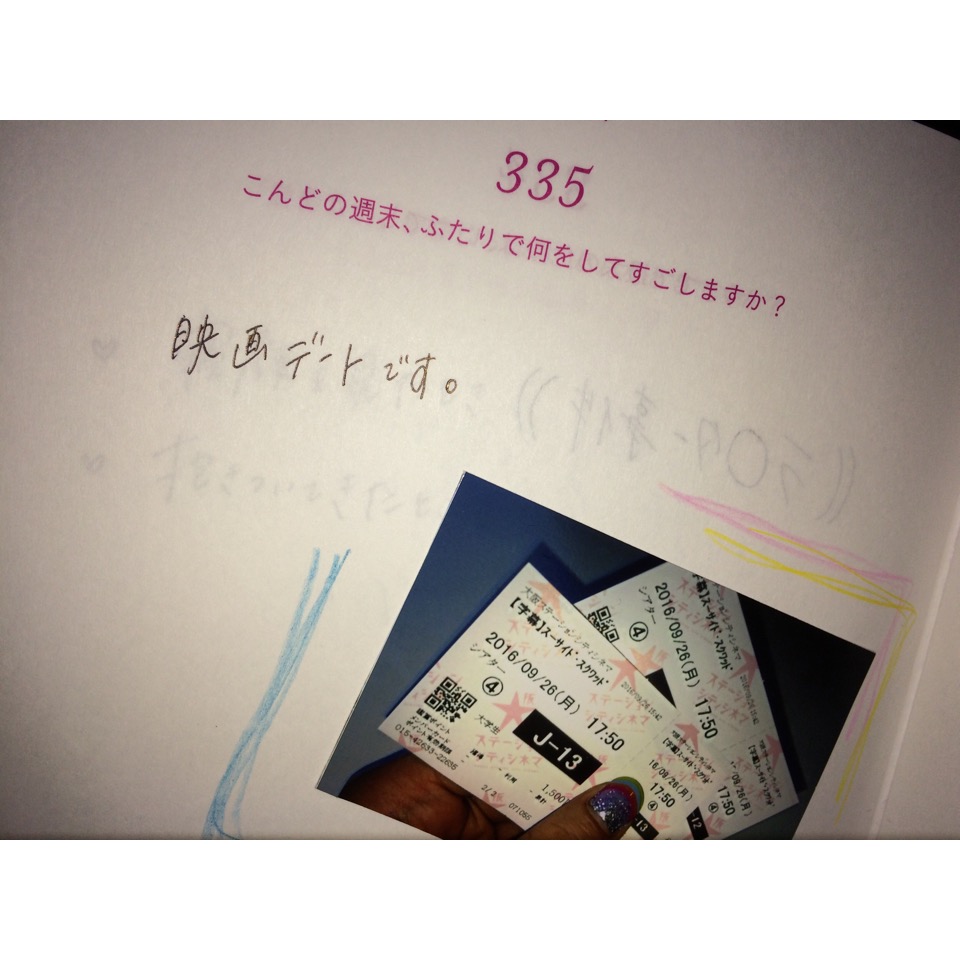 335
こんどの週末、ふたりで何をしてすごしますか?
映画デートです。
大阪ステーションシティシネマ
【字幕】スーサイド・スクワッド
2016/09/26(月) 17:50
シアター ④
大学生
J-13
1,500
2/2
071055
16/09/26(月)
17:50
④
【字幕】スーサイド・スクワッド
2016/09/26(月) 17:50
シアター ④
16/09/26(月)
17:50
④
12